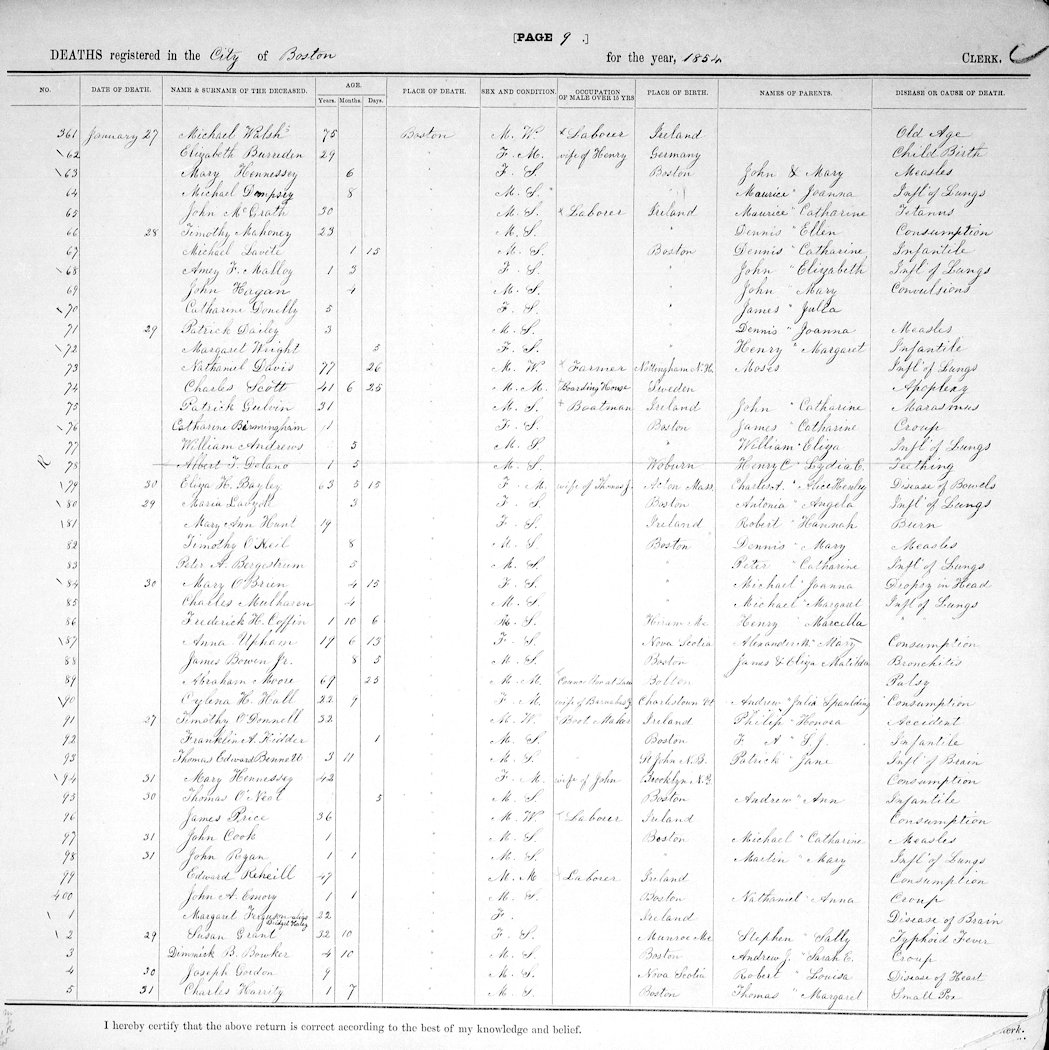 [PAGE 9 .]
DEATHS registered in the City of Boston for the year, 1854 CLERK.
NO. DATE OF DEATH. NAME & SURNAME OF THE DECEASED. AGE. Years. Months. Days. PLACE OF DEATH. SEX AND CONDITION. OCCUPATION OF MALE OVER 15 YRS PLACE OF BIRTH. NAMES OF PARENTS. DISEASE OR CAUSE OF DEATH.
361 January 27 Michael Walsh 75 Boston M. W. Laborer Ireland Old Age
62 Elizabeth Burreden 29 " F. M. wife of Henry Germany Child Birth
63 Mary Hennessey 6 " F. S. Boston John & Mary Measles
64 Michael Dempsey 8 " M. S. " Maurice " Joanna Infl. of Lungs
65 John McGrath 30 " M. S. Laborer Ireland Maurice " Catharine Tetanus
66 28 Timothy Mahoney 23 " M. S. " Dennis " Ellen Consumption
67 Michael 1 15 " M. S. Boston Dennis " Catharine Infantile
68 Amey F. Malloy 1 3 " F. S. " John " Elizabeth Infl. of Lungs
69 John Hagan 4 " M. S. " John " Mary Convulsions
70 Catharine Donelly 5 " F. S. " James " Julia
71 29 Patrick Dailey 3 " M. S. " Dennis " Joanna Measles
72 Margaret Wright 5 " F. S. " Henry " Margaret Infantile
73 Nathaniel Davis 77 26 " M. W. Farmer Nottingham N.H. Moses Infl. of Lungs
74 Charles Scott 41 6 25 " M. M. Boarding House Sweden Apoplexy
75 Patrick Gulvin 31 " M. S. Boatman Ireland John " Catharine Marasmus
76 Catharine Birmingham 11 " F. S. Boston James " Catharine Croup
77 William Andrews 5 " M. S. " William " Eliza Infl. of Lungs
78 Albert T. Delano 1 5 " M. S. Woburn Henry C " Lydia C. Teething
79 30 Eliza H. Bayley 63 5 15 " F. M. wife of Thomas J. Acton Mass. Charles A. " Alice Disease of Bowels
80 29 Maria 3 " F. S. Boston Antonia " Angela Infl. of Lungs
81 Mary Ann Hunt 19 " F. S. Ireland Robert " Hannah Burn
82 Timothy O'Neil 8 " M. S. Boston Dennis " Mary Measles
83 Peter A. Bergestrum 5 " M. S. " Peter " Catharine Infl. of Lungs
84 30 Mary O'Brien 4 15 " F. S. " Michael " Joanna Dropsy in Head
85 Charles Mulharen 4 " M. S. " Michael " Margaret Infl. of Lungs
86 Frederick H. Coffin 1 10 6 " M. S. Hiram Me. Henry " Marcella " "
87 Anna Upham 19 6 13 " F. S. Nova Scotia Alexander " Mary Consumption
88 James Bowen Jr. 8 5 " M. S. Boston James & Eliza Matilda Bronchitis
89 Abraham Moore 69 23 " M. M. Bolton Palsy
90 Cyléna H. Hall 22 9 " F. M. wife of Charlestown Vt. Andrew " Julia Spaulding Consumption
91 27 Timothy O'Donnell 32 " M. W. Boot Maker Ireland Philip " Honora Accident
92 Franklin A. Kidder 1 " M. S. Boston F. A " S.J. Infantile
93 Thomas Edward Bennett 3 11 " M. S. St. John N.B. Patrick " Jane Infl. of Brain
94 31 Mary Hennessey 42 " F. M. wife of John Brooklyn, N.Y. Consumption
95 30 Thomas O'Neal 3 " M. S. Boston Andrew " Ann Infantile
96 James Price 36 " M. W. Laborer Ireland Consumption
97 31 John Cook 1 " M. S. Boston Michael " Catharine Measles
98 31 John Ryan 1 1 " M. S. " Martin " Mary Infl. of Lungs
99 Edward Keheill 47 " M. M. Laborer Ireland Consumption
400 John A. Emory 1 1 " M. S. Boston Nathaniel " Anna Croup
1 Margaret Ferguson alias Bridget 22 " F. Ireland Disease of Brain
2 29 Susan Grant 32 10 " F. S. Munroe Me Stephen " Sally Typhoid Fever
3 Dimmick B. Bowker 4 10 " M. S. Boston Andrew J. " Sarah E. Croup
4 30 Joseph Gordon 9 " M. S. Nova Scotia Robert " Louisa Disease of Heart
5 31 Charles Warrity 1 7 " M. S. Boston Thomas " Margaret Small Pox
I hereby certify that the above return is correct according to the best of my knowledge and belief. Clerk.